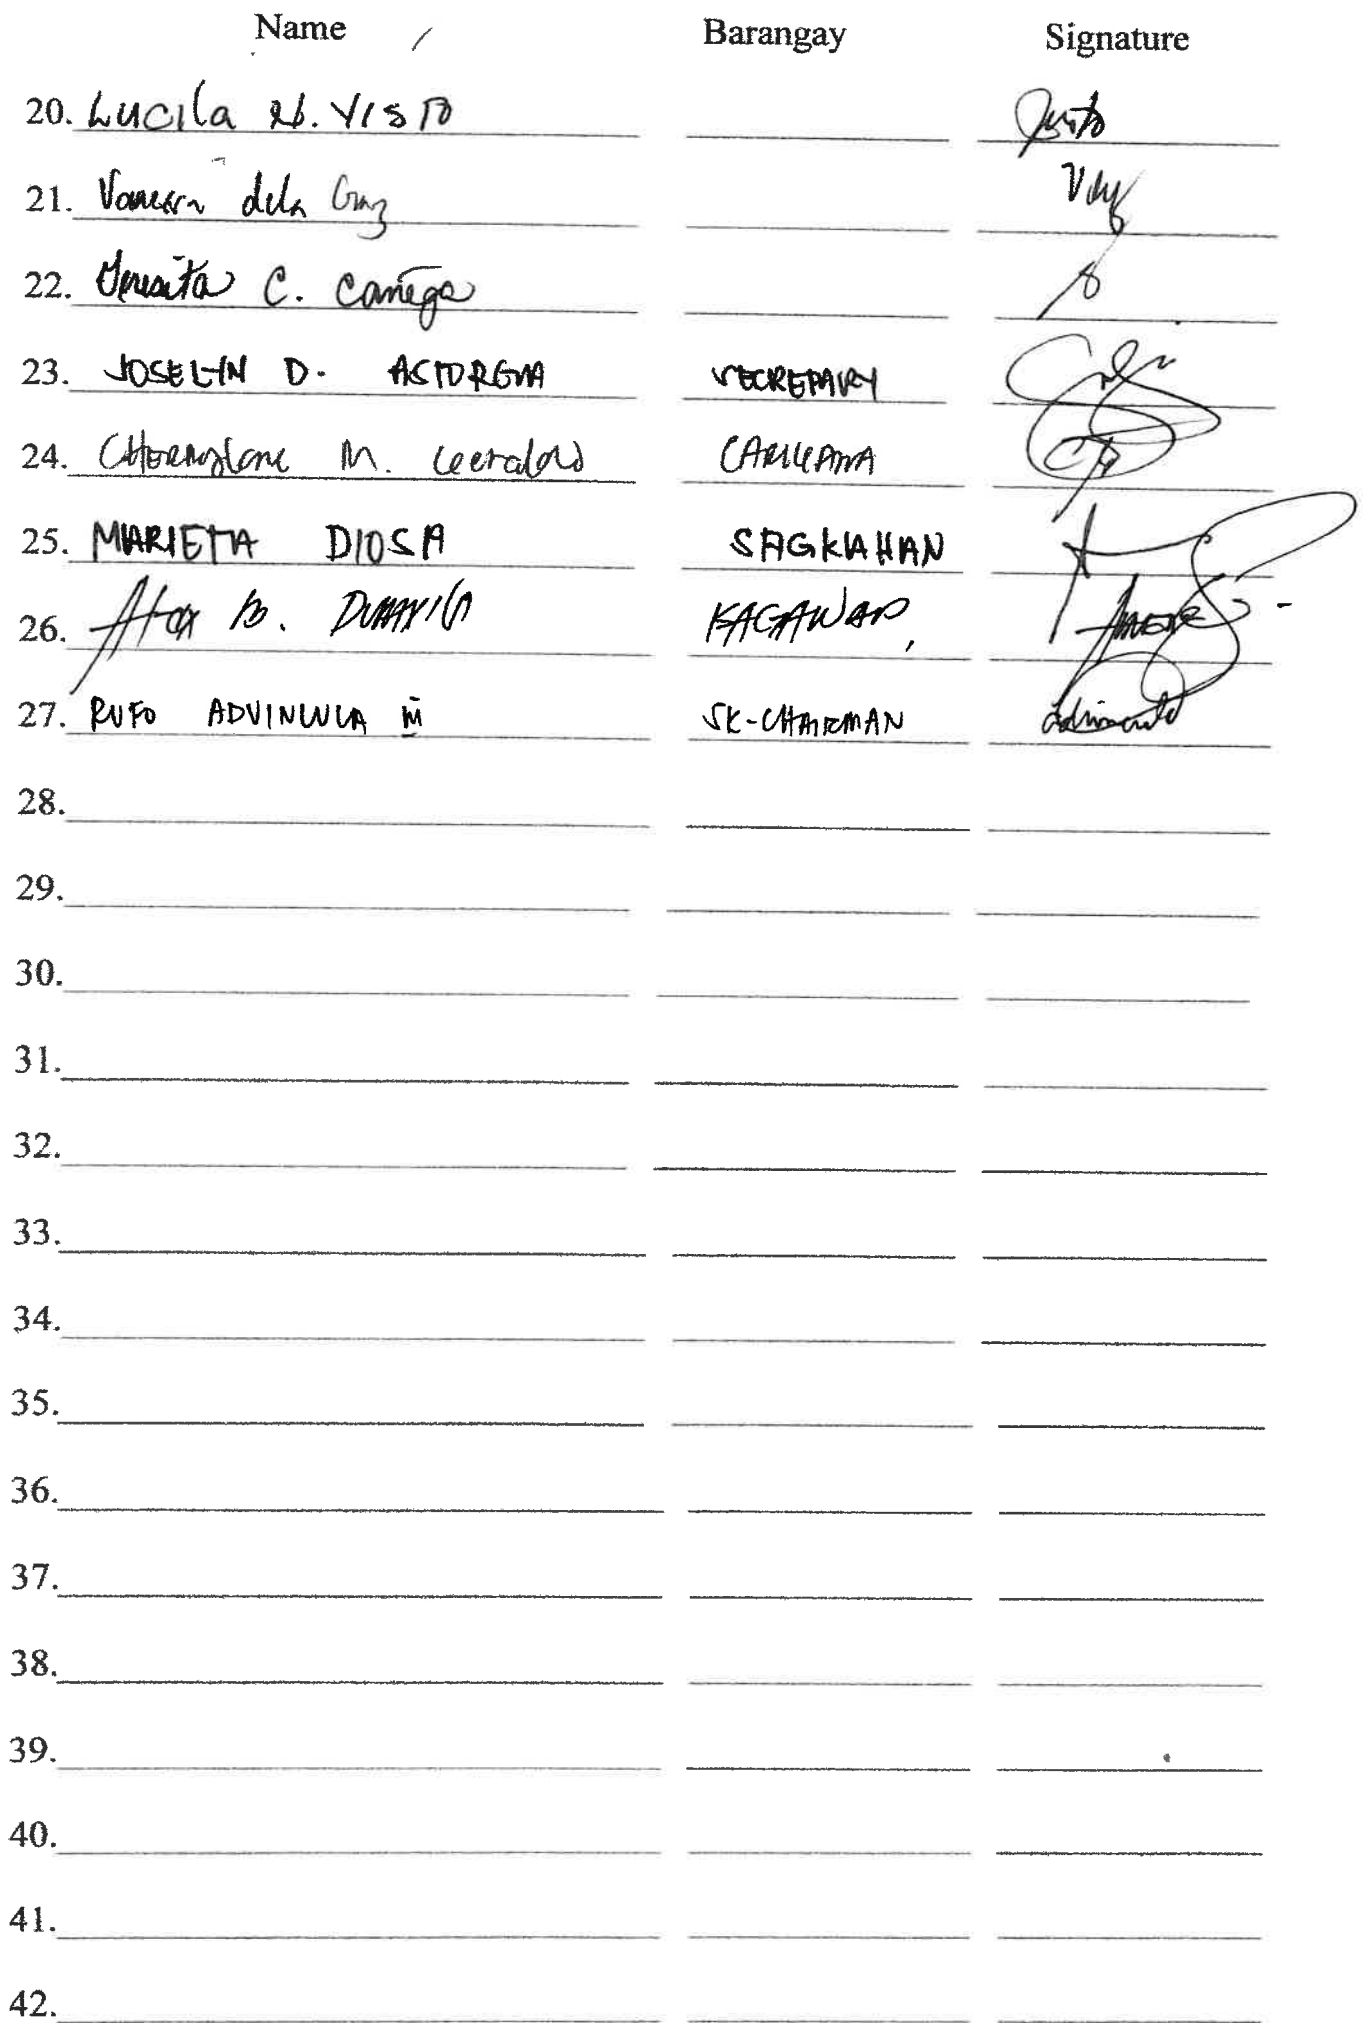 Name Barangay Signature
20. Lucila N. Visto
21. Vanessa dela Cruz
22. Teresita C. Cañega
23. JOSELYN D. ASTORGA SECRETARY
24. M.
25. MARIETTA DIOSA SAGKAHAN
26. B. KAGAWAD,
27. RUFO ADVINCULA III SK-CHAIRMAN
28.
29.
30.
31.
32.
33.
34.
35.
36.
37.
38.
39.
40.
41.
42.